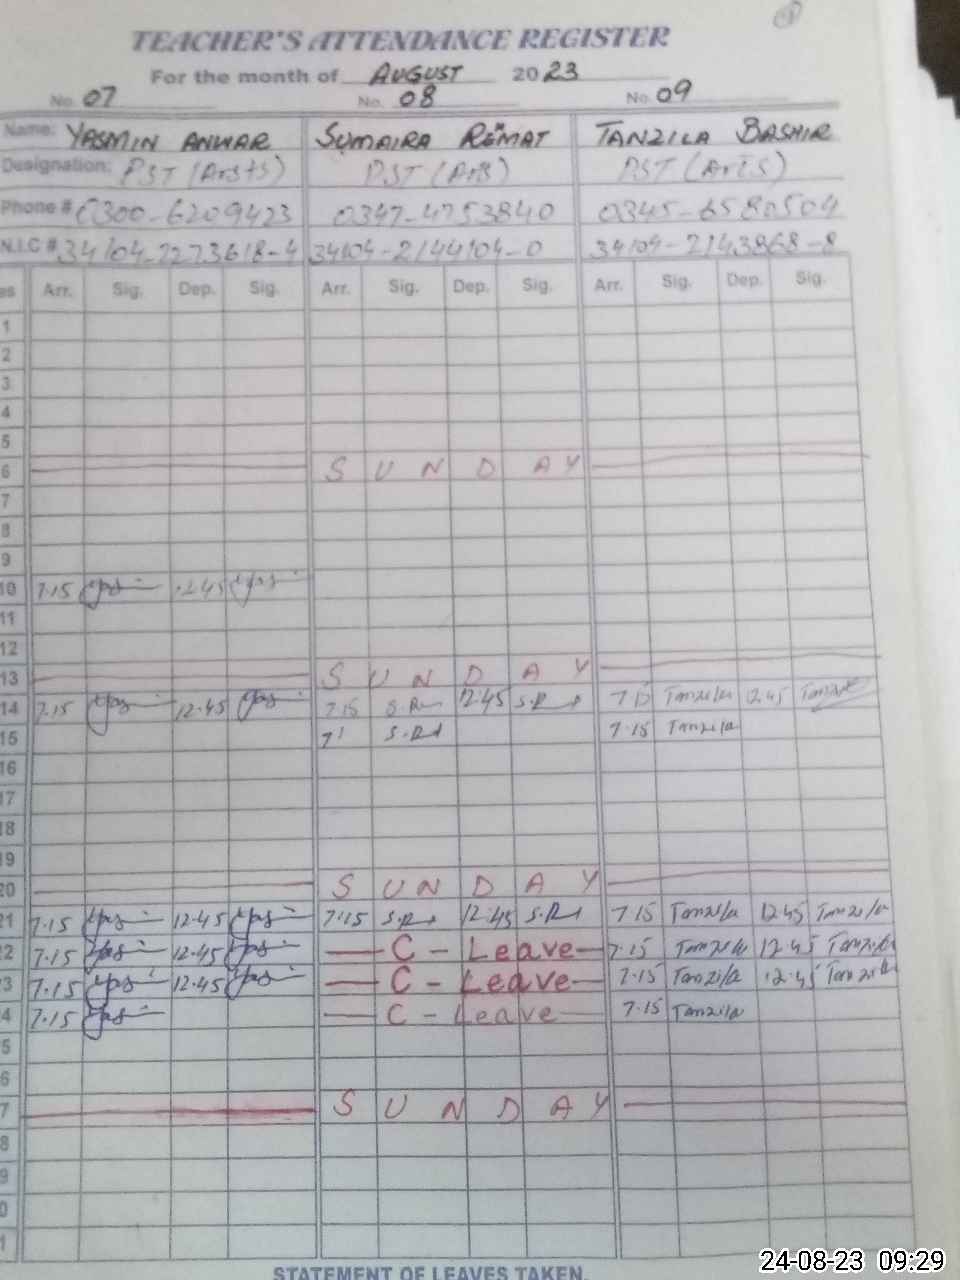 TEACHER'S ATTENDANCE REGISTER
For the month of AUGUST 2023
No. 07 No. 08 No. 09
Name: YASMIN ANWAR SUMAIRA REMAT TANZILA BASHIR
Designation: PST (Arsts) PST (Arts) PST (Arts)
Phone # 0300-6209423 0347-4753840 0345-6580504
N.I.C # 34104-2273618-4 34104-2144104-0 34104-2143868-8
es Arr. Sig. Dep. Sig. Arr. Sig. Dep. Sig. Arr. Sig. Dep. Sig.
1
2
3
4
5
6 SUNDAY
7
8
9
10 7.15 12.45
11
12
13 SUNDAY
14 7.15 12.45 7.15 S.R 12.45 S.R 7.15 Tanzila 12.45 Tanzila
15 7' S.R 7.15 Tanzila
16
17
18
19
20 SUNDAY
21 7.15 12.45 7.15 S.R 12.45 S.R 7.15 Tanzila 12.45 Tanzila
22 7.15 12.45 C - Leave 7.15 Tanzila 12.45 Tanzila
3 7.15 12.45 C - Leave 7.15 Tanzila 12.45 Tanzila
4 7.15 C - Leave 7.15 Tanzila
5
6
7 SUNDAY
8
9
0
1
STATEMENT OF LEAVES TAKEN.
24-08-23 09:29